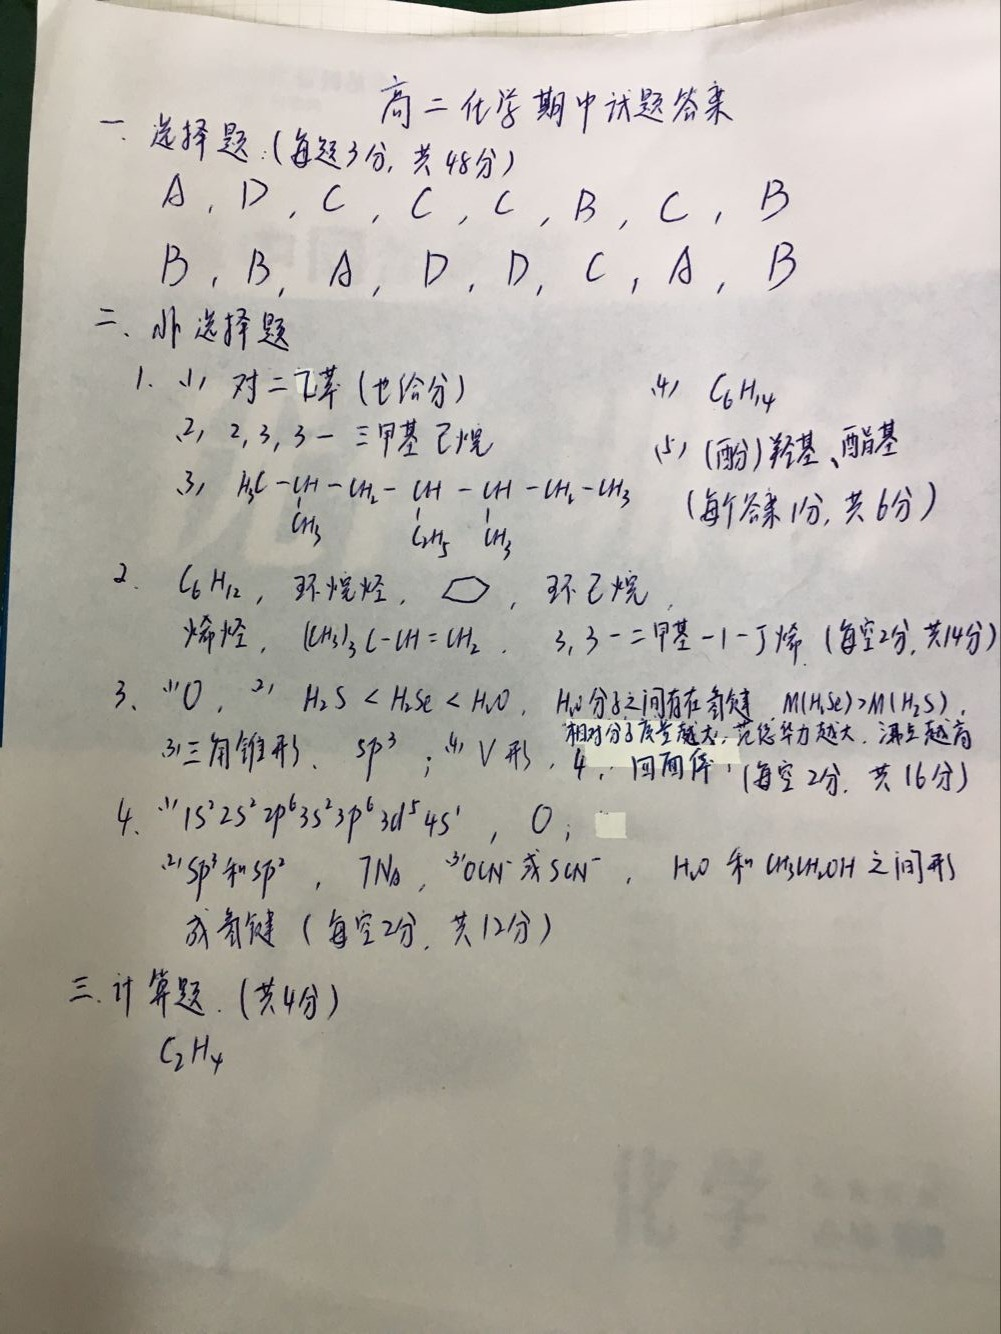 高二化学期中试题答案
一、选择题:(每题3分,共48分)
A, D, C, C, C, B, C, B
B, B, A, D, D, C, A, B
二、非选择题
1. (1) 对二乙苯(也给分)
(2) 2,3,3-三甲基己烷
(3) H₃C-CH-CH₂-CH-CH-CH₂-CH₃
CH₃ C₂H₅ CH₃
(4) C₆H₁₄
(5) (酚)羟基、酯基
(每个答案1分,共6分)
2. C₆H₁₂, 环烷烃, , 环己烷,
烯烃, (CH₃)₃C-CH=CH₂, 3,3-二甲基-1-丁烯 (每空2分,共14分)
3. (1) O, (2) H₂S < H₂Se < H₂O, H₂O分子之间存在氢键 M(H₂Se)>M(H₂S),
相对分子质量越大,范德华力越大,沸点越高
(3) 三角锥形、sp³; (4) V形, 4, 四面体 (每空2分,共16分)
4. (1) 1s²2s²2p⁶3s²3p⁶3d⁵4s¹, O;
(2) sp³和sp², 7Nₐ, (3) OCN⁻或SCN⁻, H₂O和CH₃CH₂OH之间形
成氢键 (每空2分,共12分)
三、计算题.(共4分)
C₂H₄
化学